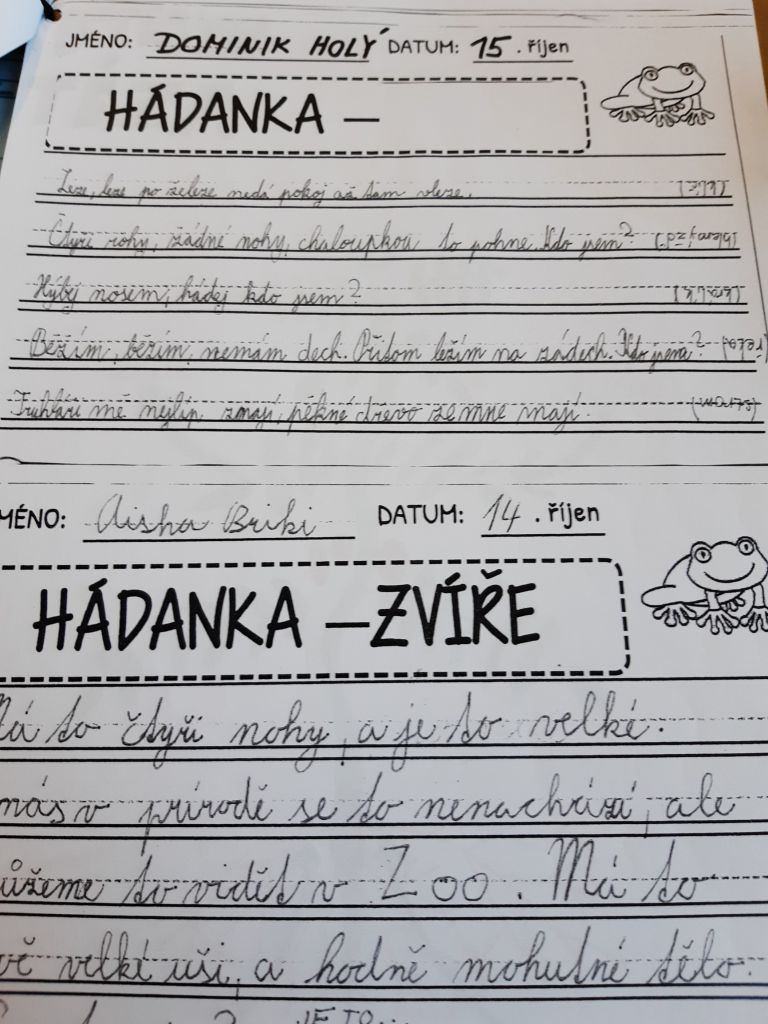 JMÉNO: DOMINIK HOLÝ DATUM: 15. říjen
HÁDANKA –
Leze, leze po železe nedá pokoj až tam vleze.
Čtyři rohy, žádné nohy, chaloupkou to pohne. Kdo jsem?
Hýbej nosem, hádej kdo jsem?
Běžím, běžím, nemám dech. Přitom ležím na zádech. Kdo jsem?
Truhláři mě nejlíp znají, pěkné dřevo ze mne mají.
MÉNO: Aisha Briki DATUM: 14. říjen
HÁDANKA – ZVÍŘE
Má to čtyři nohy, a je to velké.
nás v prírodě se to nenachází, ale
ůžeme to vidět v Zoo. Má to
vě velké uši, a hodně mohutné tělo.
JE TO...